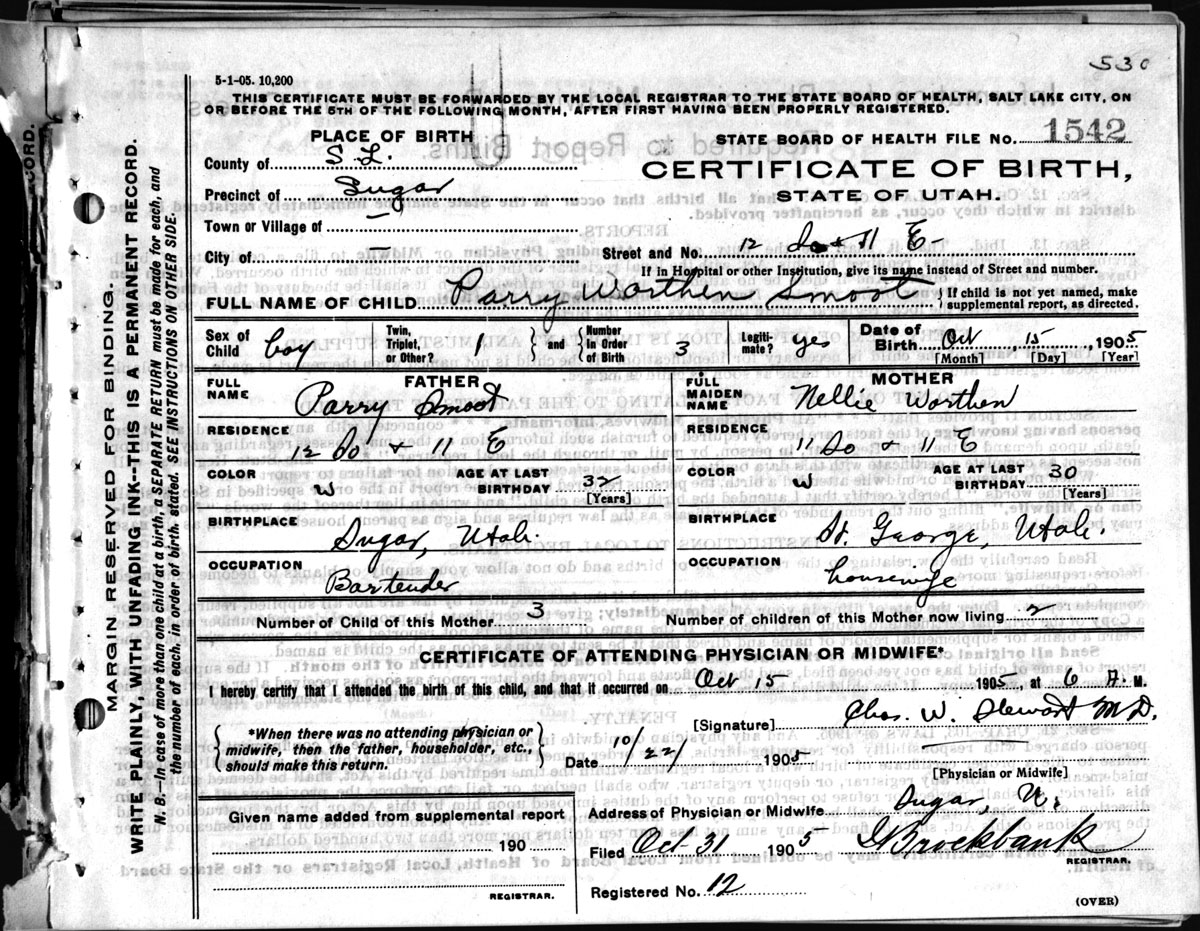 530
5-1-05. 10,200
THIS CERTIFICATE MUST BE FORWARDED BY THE LOCAL REGISTRAR TO THE STATE BOARD OF HEALTH, SALT LAKE CITY, ON
OR BEFORE THE 5TH OF THE FOLLOWING MONTH, AFTER FIRST HAVING BEEN PROPERLY REGISTERED.
PLACE OF BIRTH
County of S. L.
Precinct of Sugar
Town or Village of —
City of —
STATE BOARD OF HEALTH FILE NO. 1542
CERTIFICATE OF BIRTH,
STATE OF UTAH.
Street and No. 12 So & 11 E
If in Hospital or other Institution, give its name instead of Street and number.
FULL NAME OF CHILD Parry Worthen Smoot { If child is not yet named, make
supplemental report, as directed.
Sex of Child boy
Twin, Triplet, or Other? 1 } and { Number in Order of Birth 3
Legitimate? yes
Date of Birth Oct 15 1905
[Month] [Day] [Year]
FATHER
FULL NAME Parry Smoot
RESIDENCE
12 So & 11 E
COLOR W AGE AT LAST BIRTHDAY 32
[Years]
BIRTHPLACE
Sugar, Utah.
OCCUPATION
Bartender
MOTHER
FULL MAIDEN NAME Nellie Worthen
RESIDENCE
11 So & 11 E
COLOR W AGE AT LAST BIRTHDAY 30
[Years]
BIRTHPLACE
St. George, Utah.
OCCUPATION
housewife
Number of Child of this Mother 3 Number of children of this Mother now living 2
CERTIFICATE OF ATTENDING PHYSICIAN OR MIDWIFE*
I hereby certify that I attended the birth of this child, and that it occurred on Oct 15 1905, at 6 A. M.
{ *When there was no attending physician or
midwife, then the father, householder, etc.,
should make this return. }
[Signature] Chas. W. Stewart M D.
Date 10/22/ 1905 —
[Physician or Midwife]
Given name added from supplemental report
190
REGISTRAR.
Address of Physician or Midwife Sugar, U.
Filed Oct 31 1905 Brockbank
REGISTRAR.
Registered No. 12
(OVER)
MARGIN RESERVED FOR BINDING.
WRITE PLAINLY, WITH UNFADING INK--THIS IS A PERMANENT RECORD.
N. B.—In case of more than one child at a birth, a SEPARATE RETURN must be made for each, and
the number of each, in order of birth, stated. SEE INSTRUCTIONS ON OTHER SIDE.
CORD.